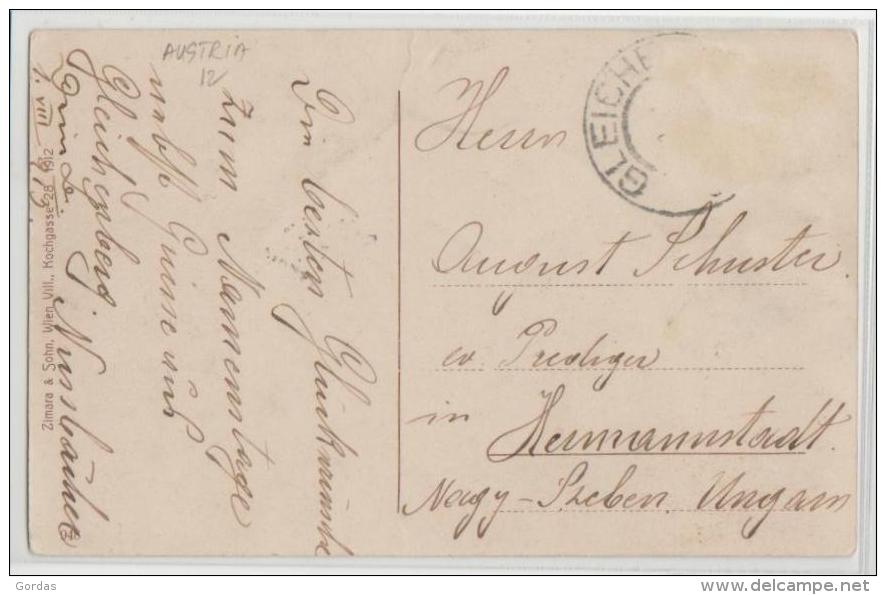 AUSTRIA
12
Die besten Glückwünsche
zum Namenstage
nebst Grüsse aus
Gleichenberg.
Nussbächer
1. VIII 1913
Zimara & Sohn, Wien VIII., Kochgasse 28. 1912
GLEICHE
Herrn
August Schuster
ev Prediger
in Hermannstadt.
Nagy-Szeben. Ungarn
Gordas
delcampe.net